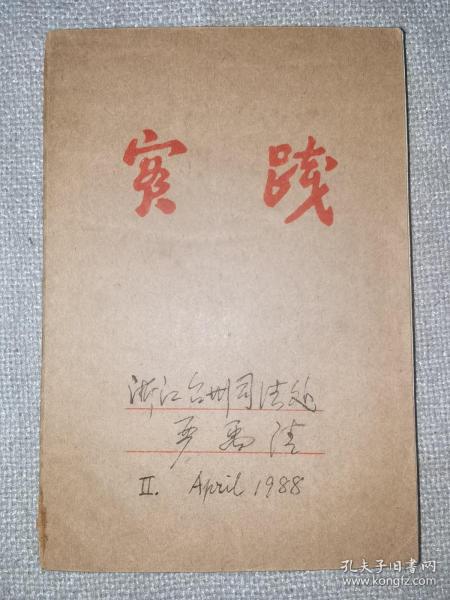 实践
浙江台州司法处
II. April 1988
孔夫子旧书网
www.kongfz.com